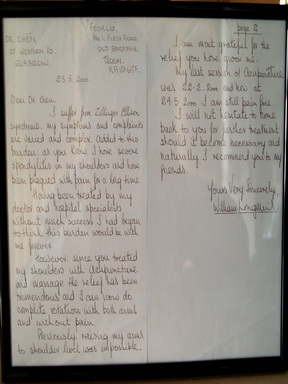 DR. CHEN
GLASGOW
FEORLIG
OLD BARRASSIE
TROON
KA10 6TF
23.5.2000
Dear Dr. Chen,
I suffer from Zollinger Ellison
syndrome, my symptoms and complaints
are varied and complex. Added to this
burden, as you know I have severe
spondylitis in my shoulders and have
been plagued with pain for a long time
Having been treated by my
doctor and hospital specialists
without much success I had began
to think this burden would be with
me forever.
However since you treated
my shoulders with acupuncture
and massage the relief has been
tremendous and I can now do
complete rotation with both arms
and without pain.
Previously raising my arms
to shoulder level was impossible.
page 2
I am most grateful for the
relief you have given me.
My last session of Acupuncture
was 22.2.2000 and now at
24.5.2000 I am still pain free.
I will not hesitate to come
back to you for further treatment
should it become necessary and
naturally I recommend you to my
friends.
Yours Very Sincerely
William